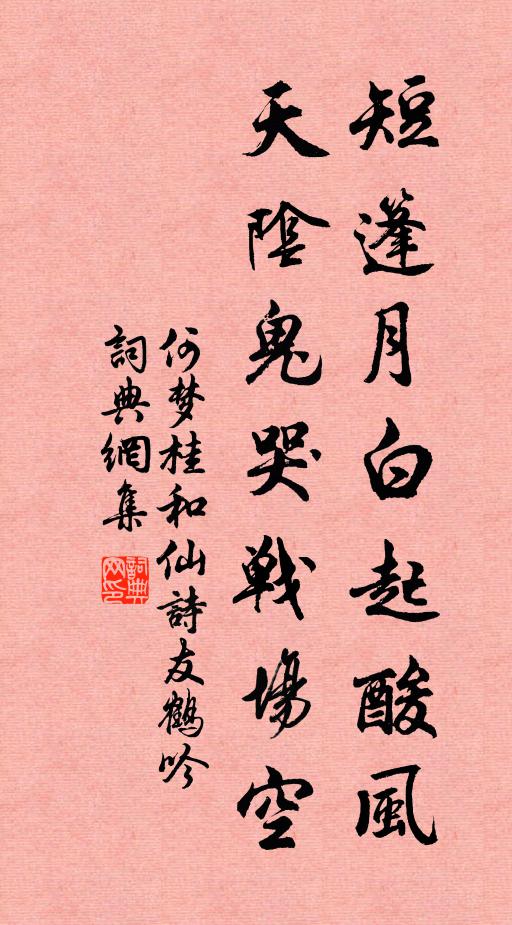 短篷月白起酸風
天陰鬼哭戰場空
何梦桂和仙詩友鶴吟
詞典網集
詞典网印